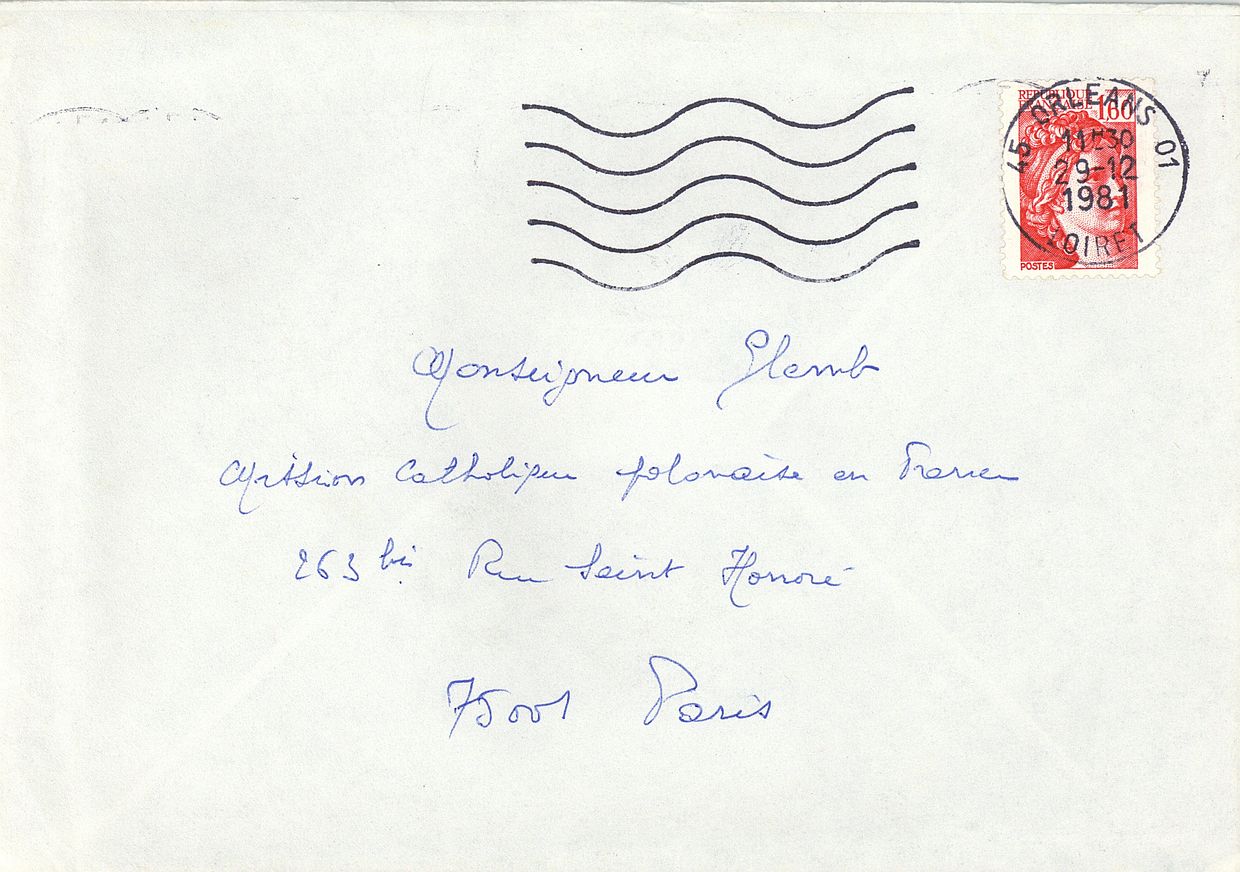 REPUBLIQUE
FRANCAISE 1,60
POSTES
45 ORLEANS 01
11H30
29-12
1981
LOIRET
Monseigneur Glemb
Mission Catholique polonaise en France
263 bis Rue Saint Honoré
75001 Paris